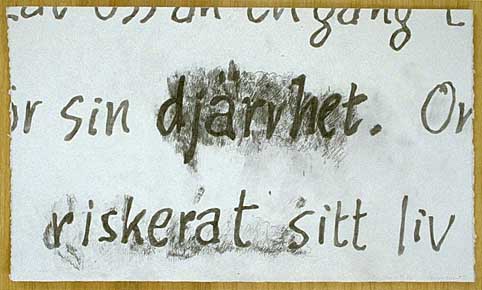 en gång
ör sin djärvhet. Or
riskerat sitt liv